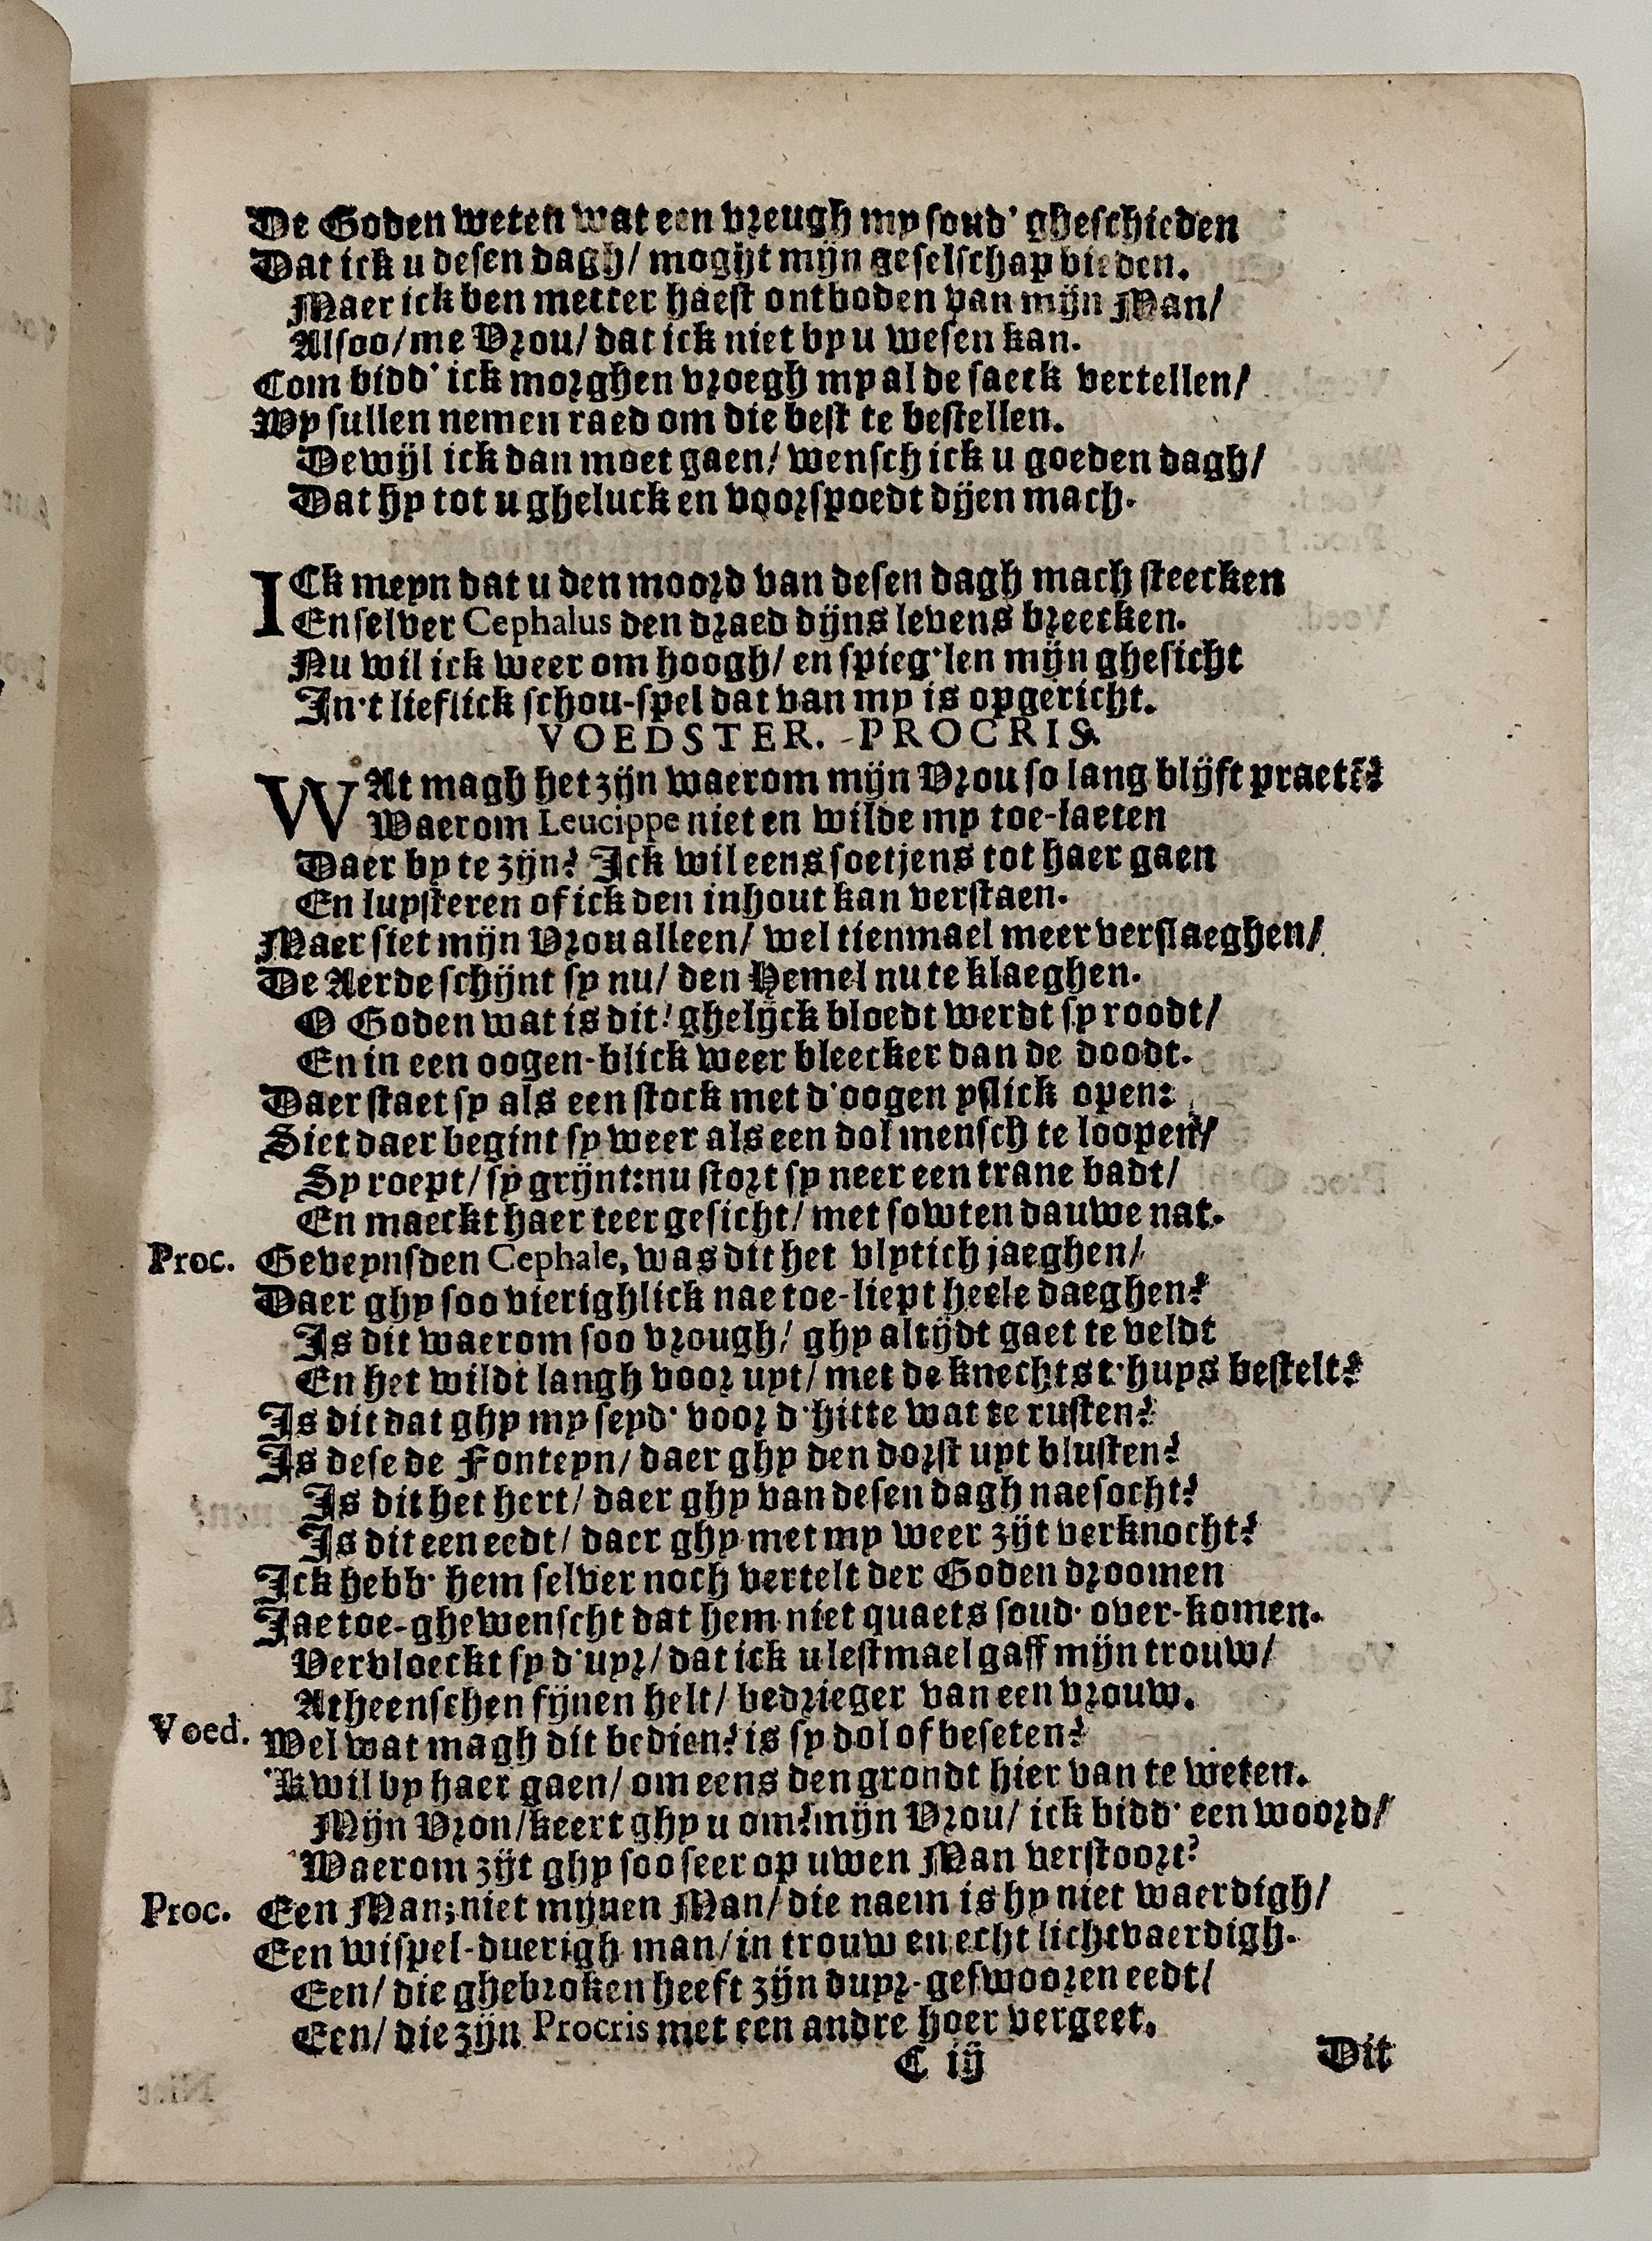 De Goden weten wat een vreugh my soud' gheschieden
Dat ick u desen dagh/ mogijt mijn geselschap bieden.
Maer ick ben metter haest ontboden van mijn Man/
Alsoo/ me Vrou/ dat ick niet by u wesen kan.
Com bidd' ick morghen vroegh my al de saeck vertellen/
Wy sullen nemen raed om die best te bestellen.
Dewijl ick dan moet gaen/ wensch ick u goeden dagh/
Dat hy tot u gheluck en voorspoedt dijen mach.
ICk meyn dat u den moord van desen dagh mach steecken
En selver Cephalus den draed dijns levens breecken.
Nu wil ick weer om hoogh/ en spieg'len mijn ghesicht
In't lieflick schou-spel dat van my is opgericht.
VOEDSTER. PROCRIS.
WAt magh het zijn waerom mijn Vrou so lang blijft praetẽ?
Waerom Leucippe niet en wilde my toe-laeten
Daer by te zijn? Ick wil eens soetjens tot haer gaen
En luysteren of ick den inhout kan verstaen.
Maer siet mijn Vrou alleen/ wel tienmael meer verslaeghen/
De Aerde schijnt sy nu/ den Hemel nu te klaeghen.
O Goden wat is dit! ghelijck bloedt werdt sy roodt/
En in een oogen-blick weer bleecker dan de doodt.
Daer staet sy als een stock met d'oogen yslick open:
Siet daer begint sy weer als een dol mensch te loopen/
Sy roept/ sy grijnt: nu stort sy neer een trane badt/
En maeckt haer teer gesicht/ met sowten dauwe nat.
Proc. Geveynsden Cephale, was dit het vlytich jaeghen/
Daer ghy soo vierighlick nae toe-liept heele daeghen?
Is dit waerom soo vrough/ ghy altijdt gaet te veldt
En het wildt langh voor uyt/ met de knechts t'huys bestelt?
Is dit dat ghy my seyd' voor d'hitte wat te rusten?
Is dese de Fonteyn/ daer ghy den dorst uyt blusten?
Is dit het hert/ daer ghy van desen dagh nae socht?
Is dit een eedt/ daer ghy met my weer zijt verknocht?
Ick hebb' hem selver noch vertelt der Goden droomen
Jae toe-ghewenscht dat hem niet quaets soud' over-komen.
Vervloeckt sy d'uyr/ dat ick u lestmael gaff mijn trouw/
Atheenschen fijnen helt/ bedrieger van een vrouw.
Voed. Wel wat magh dit bedien? is sy dol of beseten?
'k wil by haer gaen/ om eens den grondt hier van te weten.
Mijn Vron/ keert ghy u om? mijn Vrou/ ick bidd' een woord/
Waerom zijt ghy soo seer op uwen Man verstoort?
Proc. Een Man; niet mijnen Man/ die naem is hy niet waerdigh/
Een wispel-duerigh man/ in trouw en echt lichtvaerdigh.
Een/ die ghebroken heeft zijn duyr-geswooren eedt/
Een/ die zijn Procris met een andre hoer vergeet.
C ij
Dit